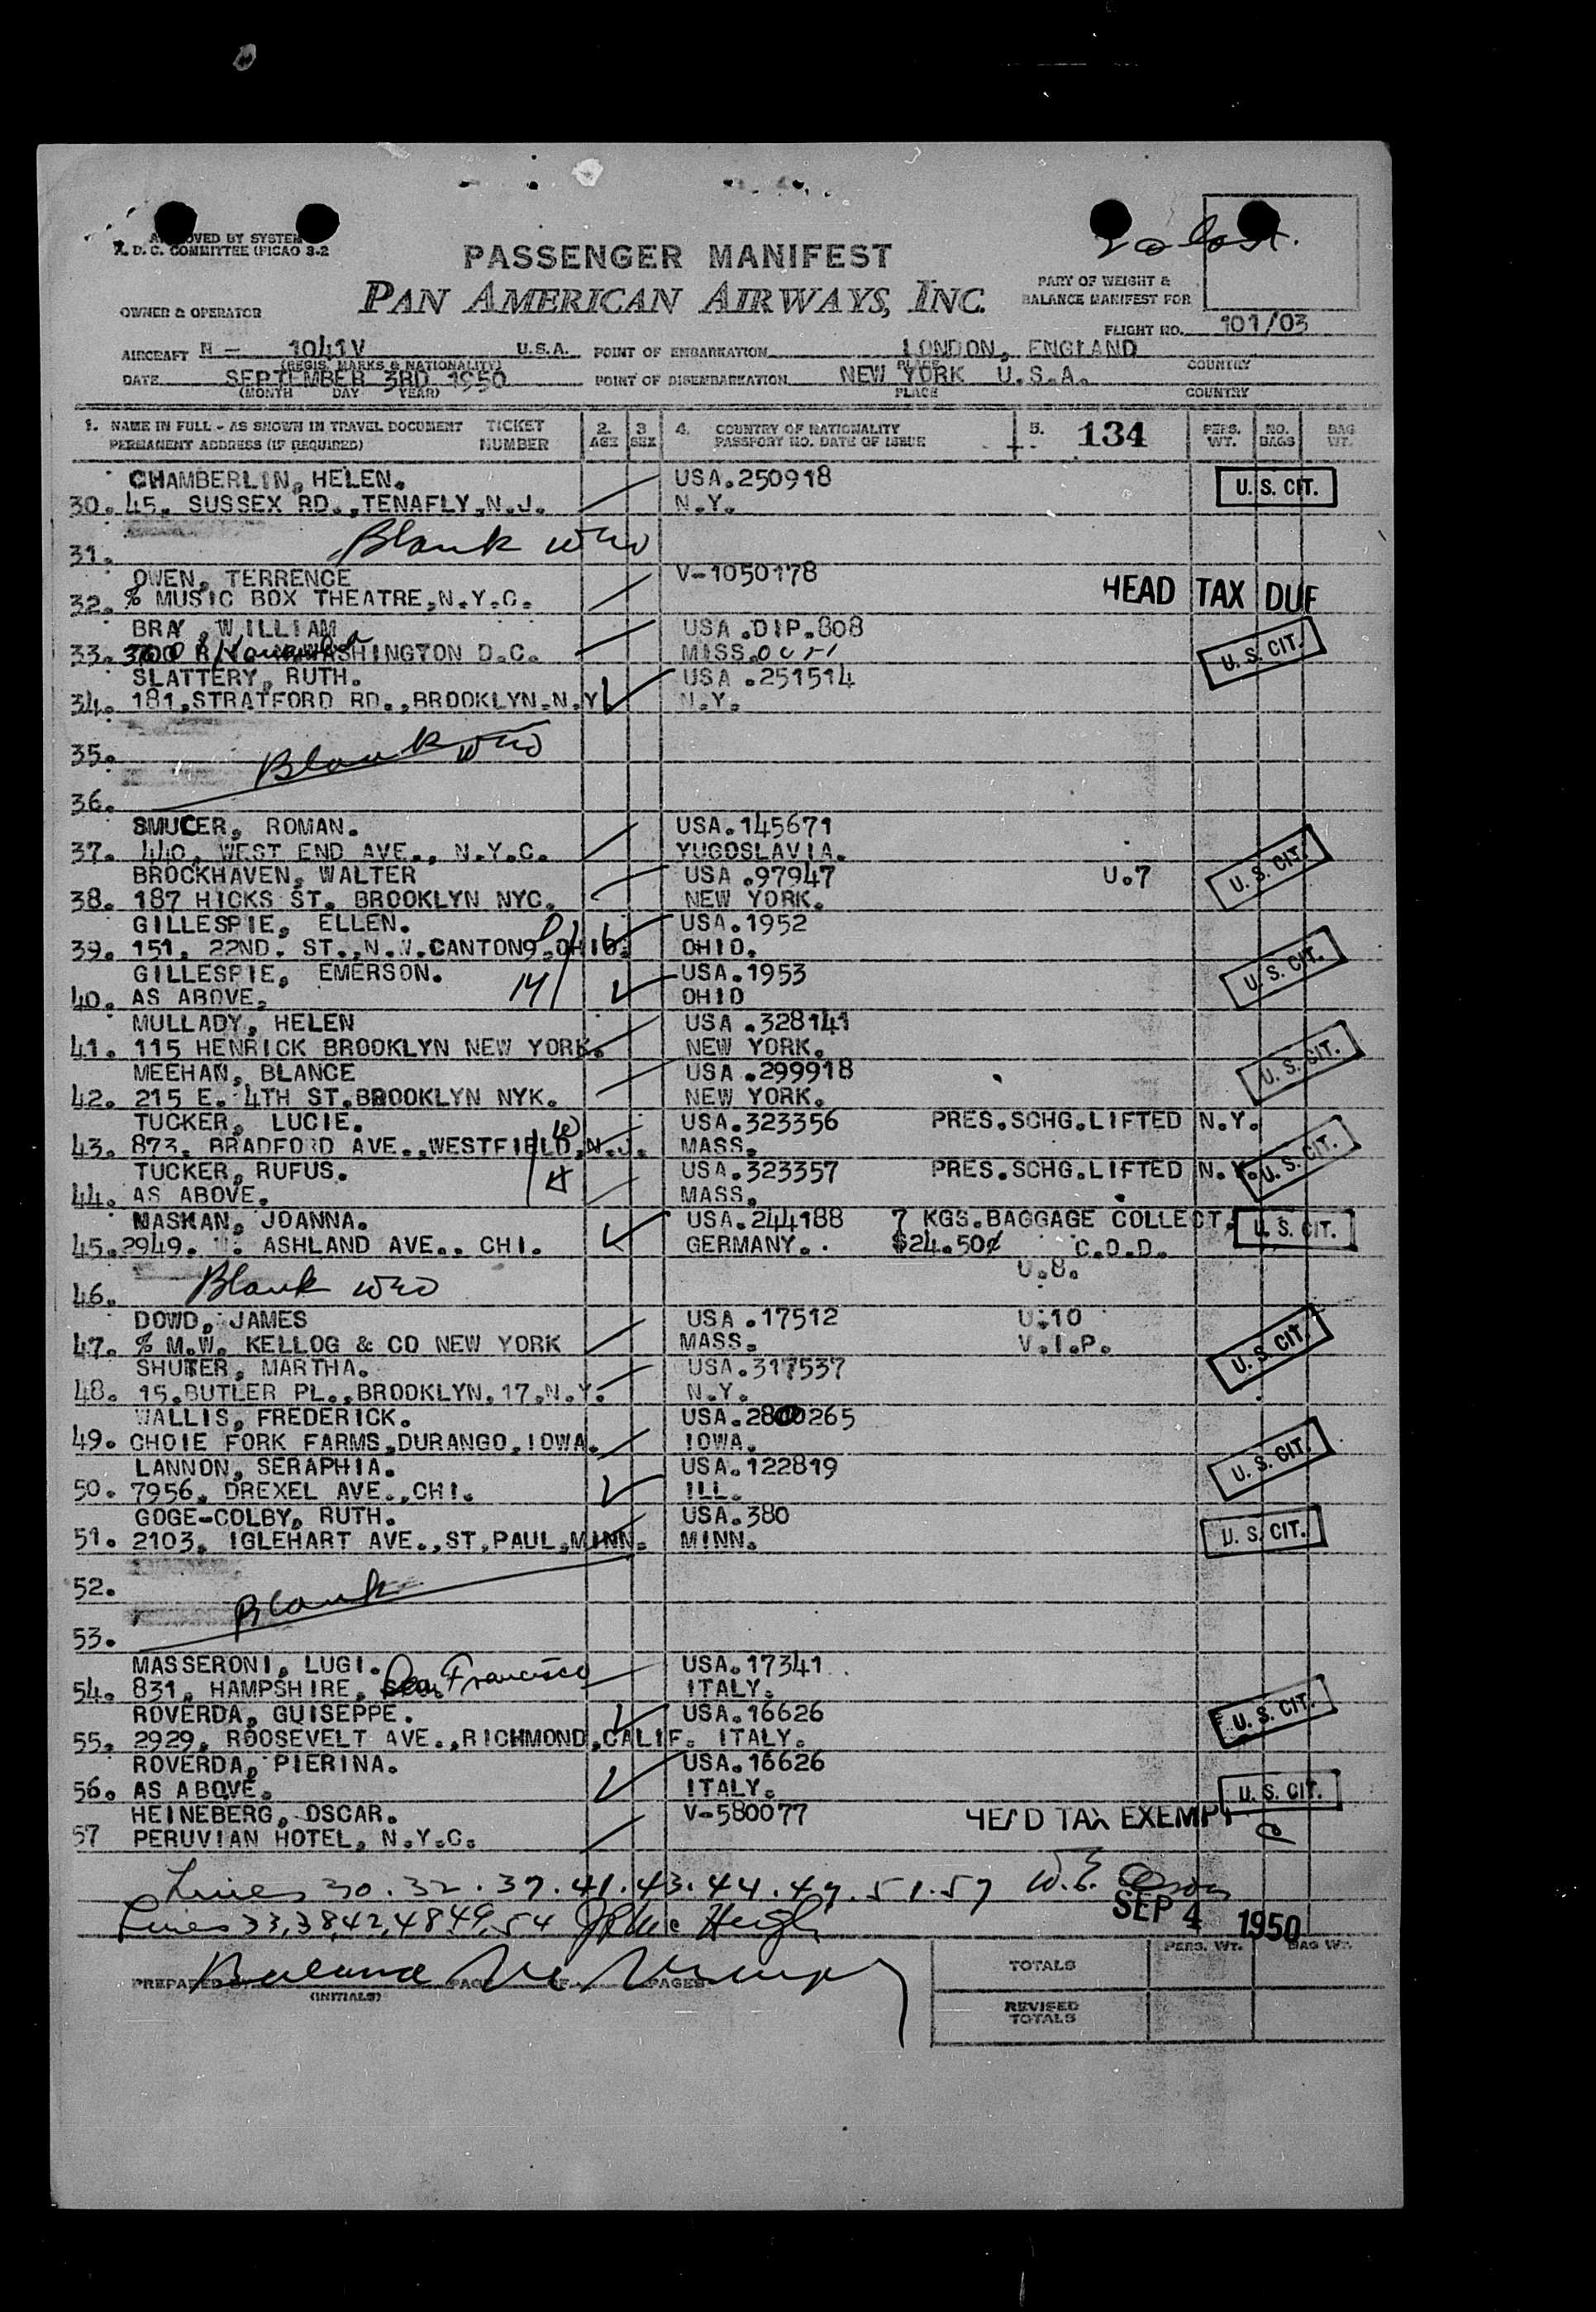 APPROVED BY SYSTEM
A. D. C. COMMITTEE (PICAO 3.2
PASSENGER MANIFEST
PAN AMERICAN AIRWAYS, INC.
PART OF WEIGHT &
BALANCE MANIFEST FOR
OWNER & OPERATOR
FLIGHT NO. 101/03
AIRCRAFT N - 1041V U.S.A. POINT OF EMBARKATION LONDON, ENGLAND
(REGIS. MARKS & NATIONALITY) PLACE COUNTRY
DATE SEPTEMBER 3RD 1950 POINT OF DISEMBARKATION NEW YORK U.S.A.
(MONTH DAY YEAR) PLACE COUNTRY
1. NAME IN FULL - AS SHOWN IN TRAVEL DOCUMENT TICKET 2. 3 4. COUNTRY OF NATIONALITY 5. 134 PERS. NO. BAG
PERMANENT ADDRESS (IF REQUIRED) NUMBER AGE SEX PASSPORT NO. DATE OF ISSUE WT. BAGS WT.
CHAMBERLIN, HELEN. USA.250918 U.S. CIT.
30. 45. SUSSEX RD.,TENAFLY,N.J. N.Y.
31. Blank
OWEN, TERRENCE V-1050178 HEAD TAX DUE
32. % MUSIC BOX THEATRE,N.Y.C.
BRAY ,WILLIAM USA.DIP.808
33. WASHINGTON D.C. MISSouri U.S. CIT.
SLATTERY, RUTH. USA .251514
34. 181.STRATFORD RD.,BROOKLYN.N.Y N.Y.
35. Blank
36.
SMUCER, ROMAN. USA.145671
37. 440, WEST END AVE., N.Y.C. YUGOSLAVIA.
BROCKHAVEN, WALTER USA .97947 U.7 U.S. CIT.
38. 187 HICKS ST. BROOKLYN NYC. NEW YORK.
GILLESPIE, ELLEN. USA.1952
39. 151. 22ND. ST.,N.W.CANTON9.OHIO. OHIO.
GILLESPIE, EMERSON. USA.1953 U.S. CIT.
40. AS ABOVE. 14 OHIO
MULLADY, HELEN USA .328141
41. 115 HENRICK BROOKLYN NEW YORK. NEW YORK.
MEEHAN, BLANCE USA .299918 U.S. CIT.
42. 215 E. 4TH ST.BROOKLYN NYK. NEW YORK.
TUCKER, LUCIE. USA.323356 PRES.SCHG.LIFTED N.Y.
43. 873. BRADFORD AVE.,WESTFIELD,N.J. MASS.
TUCKER, RUFUS. USA.323357 PRES.SCHG.LIFTED N.Y. U.S. CIT.
44. AS ABOVE. MASS.
MASKAN, JOANNA. USA.244188 7 KGS.BAGGAGE COLLECT. U.S. CIT.
45.2949. W. ASHLAND AVE.. CHI. GERMANY.. $24.50¢ C.O.D.
46. Blank U.8.
DOWD, JAMES USA .17512 U.10
47. % M.W. KELLOG & CO NEW YORK MASS. V.I.P. U.S. CIT.
SHUTER, MARTHA. USA.317537
48. 15.BUTLER PL.,BROOKLYN.17.N.Y. N.Y.
WALLIS, FREDERICK. USA.2800265
49. CHOIE FORK FARMS,DURANGO,IOWA. IOWA.
LANNON, SERAPHIA. USA.122819 U.S. CIT.
50. 7956. DREXEL AVE.,CHI. ILL.
GOGE-COLBY, RUTH. USA.380 U.S. CIT.
51. 2103. IGLEHART AVE.,ST.PAUL,MINN. MINN.
52. Blank
53.
MASSERONI, LUGI. USA.17341
54. 831, HAMPSHIRE, San Francisco ITALY.
ROVERDA, GUISEPPE. USA.16626 U.S. CIT.
55. 2929. ROOSEVELT AVE.,RICHMOND,CALIF. ITALY.
ROVERDA, PIERINA. USA.16626
56. AS ABOVE. ITALY. U.S. CIT.
HEINEBERG, OSCAR. V-580077 HEAD TAX EXEMPT
57 PERUVIAN HOTEL, N.Y.C.
Lines 30.32.37.41.43.44.47.51.57
SEP 4 1950
Lines 33,38,42,48,49,54
PREPARED BY PAGE OF PAGES
(INITIALS)
PERS. WT. BAG WT.
TOTALS
REVISED
TOTALS